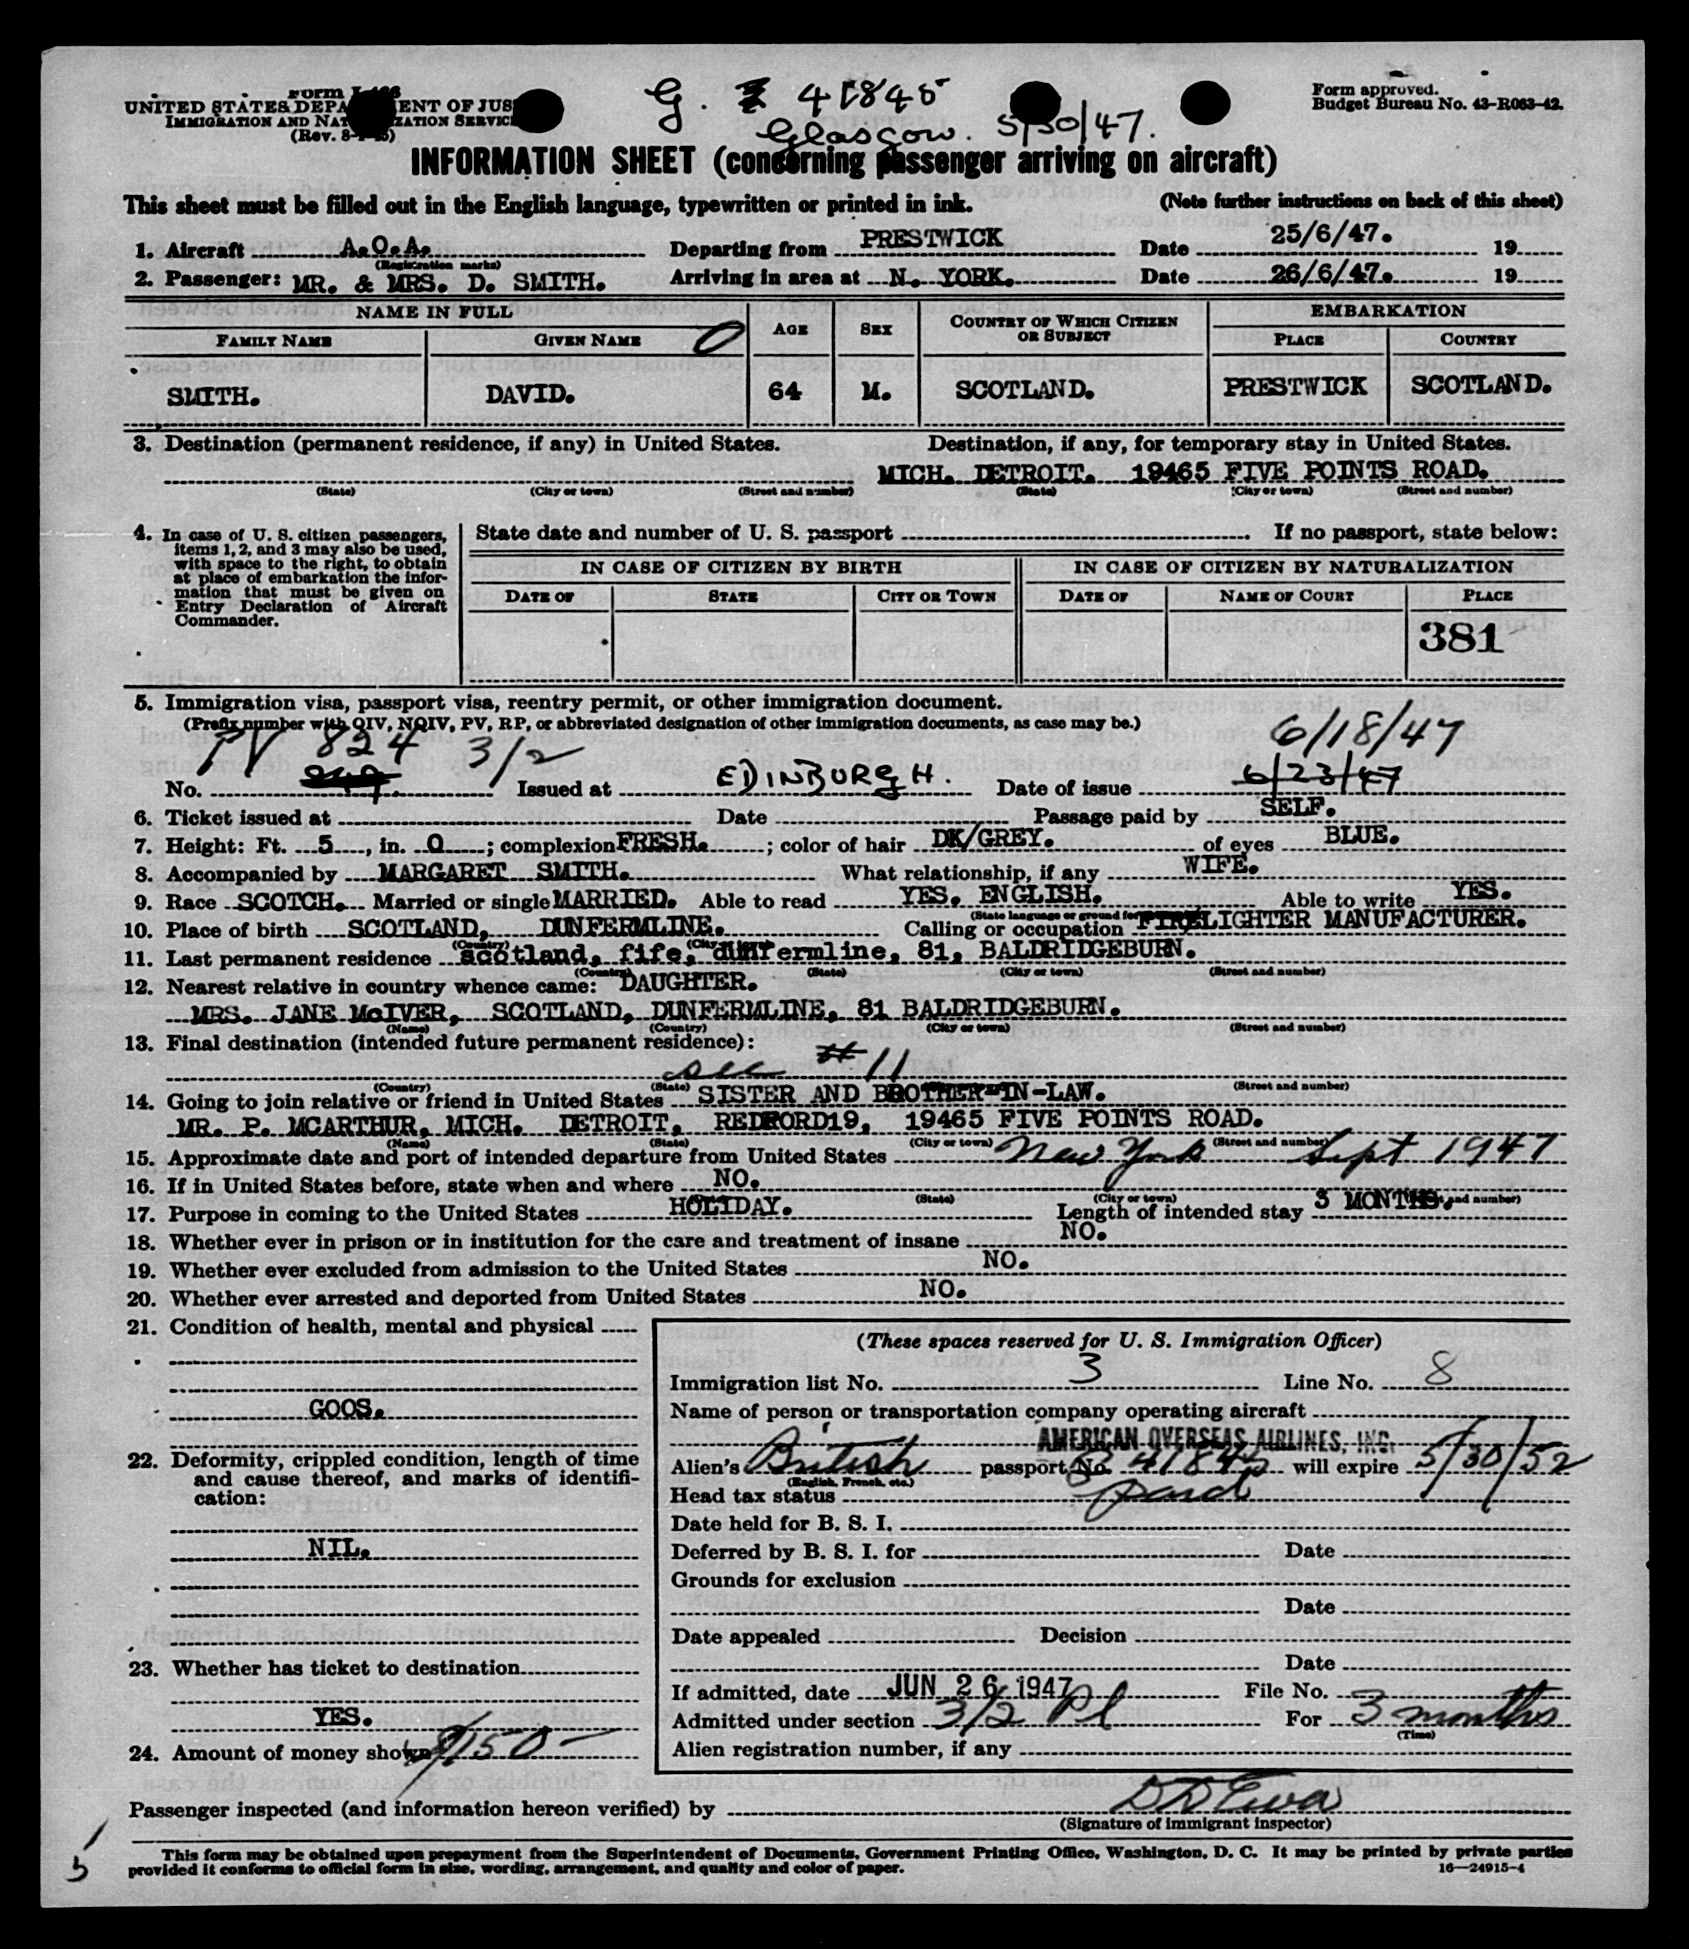 Form I-466
UNITED STATES DEPARTMENT OF JUSTICE
IMMIGRATION AND NATURALIZATION SERVICE
G. 41845
Glasgow. 5/30/47.
Form approved.
Budget Bureau No. 43-R063-42.
INFORMATION SHEET (concerning passenger arriving on aircraft)
This sheet must be filled out in the English language, typewritten or printed in ink. (Note further instructions on back of this sheet)
1. Aircraft A.O.A. Departing from PRESTWICK Date 25/6/47. 19
(Registration marks)
2. Passenger: MR. & MRS. D. SMITH. Arriving in area at N. YORK. Date 26/6/47. 19
NAME IN FULL AGE SEX COUNTRY OF WHICH CITIZEN OR SUBJECT EMBARKATION
FAMILY NAME GIVEN NAME PLACE COUNTRY
SMITH. DAVID. 64 M. SCOTLAND. PRESTWICK SCOTLAND.
3. Destination (permanent residence, if any) in United States. Destination, if any, for temporary stay in United States.
MICH. DETROIT. 19465 FIVE POINTS ROAD.
(State) (City or town) (Street and number) (State) (City or town) (Street and number)
4. In case of U. S. citizen passengers, items 1, 2, and 3 may also be used, with space to the right, to obtain at place of embarkation the information that must be given on Entry Declaration of Aircraft Commander.
State date and number of U. S. passport If no passport, state below:
IN CASE OF CITIZEN BY BIRTH IN CASE OF CITIZEN BY NATURALIZATION
DATE OF STATE CITY OR TOWN DATE OF NAME OF COURT PLACE
381
5. Immigration visa, passport visa, reentry permit, or other immigration document.
(Prefix number with QIV, NQIV, PV, RP, or abbreviated designation of other immigration documents, as case may be.)
PV 824 3/2 6/18/47
No. 249. Issued at EDINBURGH. Date of issue 6/23/47
6. Ticket issued at Date Passage paid by SELF.
7. Height: Ft. 5, in. 0; complexion FRESH.; color of hair DK/GREY. of eyes BLUE.
8. Accompanied by MARGARET SMITH. What relationship, if any WIFE.
9. Race SCOTCH. Married or single MARRIED. Able to read YES. ENGLISH. Able to write YES.
10. Place of birth SCOTLAND, DUNFERMLINE. Calling or occupation FIRELIGHTER MANUFACTURER.
11. Last permanent residence scotland, fife, dunfermline, 81, BALDRIDGEBURN.
(Country) (State) (City or town) (Street and number)
12. Nearest relative in country whence came: DAUGHTER.
MRS. JANE McIVER, SCOTLAND, DUNFERMLINE, 81 BALDRIDGEBURN.
(Name) (Country) (City or town) (Street and number)
13. Final destination (intended future permanent residence):
see # 11
(Country) (State) (Street and number)
14. Going to join relative or friend in United States SISTER AND BROTHER-IN-LAW.
MR. P. MCARTHUR, MICH. DETROIT, REDFORD19, 19465 FIVE POINTS ROAD.
(Name) (State) (City or town) (Street and number)
15. Approximate date and port of intended departure from United States New York Sept 1947
16. If in United States before, state when and where NO.
(State) (City or town) (Street and number)
17. Purpose in coming to the United States HOLIDAY. Length of intended stay 3 MONTHS.
18. Whether ever in prison or in institution for the care and treatment of insane NO.
19. Whether ever excluded from admission to the United States NO.
20. Whether ever arrested and deported from United States NO.
21. Condition of health, mental and physical
GOOS.
22. Deformity, crippled condition, length of time and cause thereof, and marks of identification:
NIL.
23. Whether has ticket to destination
YES.
24. Amount of money shown $150-
(These spaces reserved for U. S. Immigration Officer)
Immigration list No. 3 Line No. 8
Name of person or transportation company operating aircraft
AMERICAN OVERSEAS AIRLINES, INC.
Alien's British passport No. 41845 will expire 5/30/52
(English, French, etc.)
Head tax status paid
Date held for B. S. I.
Deferred by B. S. I. for Date
Grounds for exclusion
Date
Date appealed Decision
Date
If admitted, date JUN 26 1947 File No.
Admitted under section 3/2 Pl For 3 months
(Time)
Alien registration number, if any
Passenger inspected (and information hereon verified) by
(Signature of immigrant inspector)
This form may be obtained upon prepayment from the Superintendent of Documents, Government Printing Office, Washington, D. C. It may be printed by private parties
provided it conforms to official form in size, wording, arrangement, and quality and color of paper. 16—24915-4
5